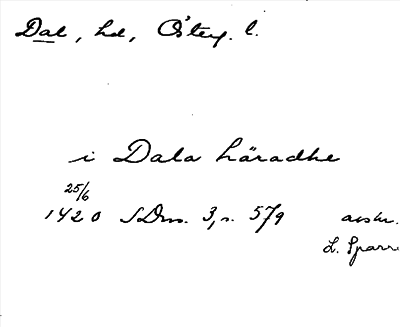 Dal, hd, Österg. l.
i Dala häradhe
25/6
1420 SDns. 3, s. 579 avskr.
L. Sparr